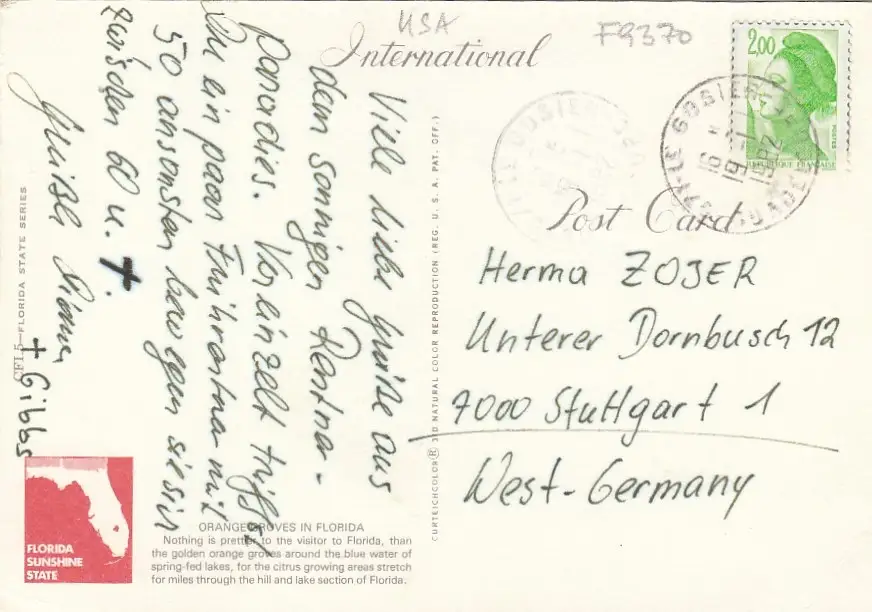 USA
F9370
International
Post Card
2,00
POSTES
REPUBLIQUE FRANÇAISE
LE GOSIER
Viele liebe Grüße aus
dem sonnigen Rentner-
paradies. Vereinzelt trifft
man ein paar Frührentner mit
50 ansonsten bewegen sie sich
zwischen 60 u. +.
Grüße
+ Gibbs
Herma ZOJER
Unterer Dornbusch 12
7000 Stuttgart 1
West-Germany
CFL5—FLORIDA STATE SERIES
CURTEICHCOLOR® 3-D NATURAL COLOR REPRODUCTION (REG. U. S. A. PAT. OFF.)
FLORIDA
SUNSHINE
STATE
ORANGE GROVES IN FLORIDA
Nothing is prettier to the visitor to Florida, than
the golden orange groves around the blue water of
spring-fed lakes, for the citrus growing areas stretch
for miles through the hill and lake section of Florida.